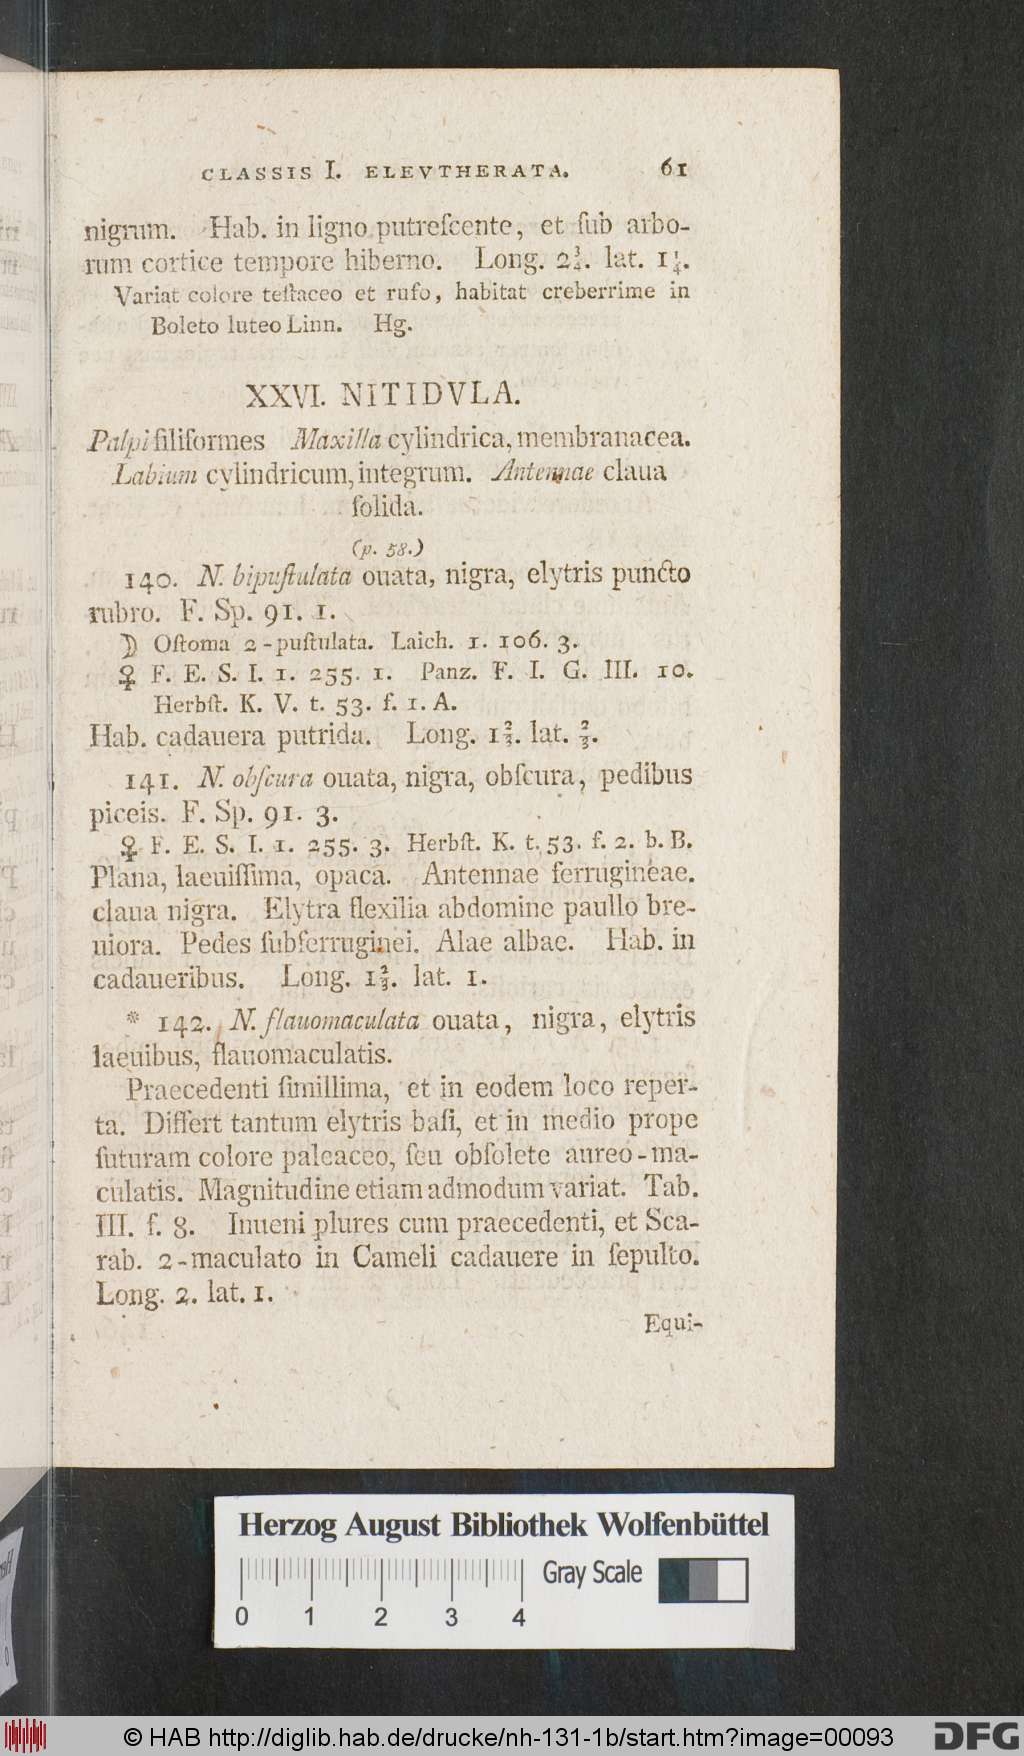 CLASSIS I. ELEVTHERATA. 61
nigrum. Hab. in ligno putreſcente, et ſub arbo-
rum cortice tempore hiberno. Long. 2¾. lat. 1¼.
Variat colore teſtaceo et rufo, habitat creberrime in
Boleto luteo Linn. Hg.
XXVI. NITIDVLA.
Palpi filiformes Maxilla cylindrica, membranacea.
Labium cylindricum, integrum. Antennae claua
ſolida.
(p. 58.)
140. N. bipuſtulata ouata, nigra, elytris puncto
rubro. F. Sp. 91. 1.
☽ Oſtoma 2-puſtulata. Laich. 1. 106. 3.
♀ F. E. S. I. 1. 255. 1. Panz. F. I. G. III. 10.
Herbſt. K. V. t. 53. f. 1. A.
Hab. cadauera putrida. Long. 1⅔. lat. ⅔.
141. N. obſcura ouata, nigra, obſcura, pedibus
piceis. F. Sp. 91. 3.
♀ F. E. S. I. 1. 255. 3. Herbſt. K. t. 53. f. 2. b. B.
Plana, laeuiſſima, opaca. Antennae ferrugineae.
claua nigra. Elytra flexilia abdomine paullo bre-
uiora. Pedes ſubferruginei. Alae albae. Hab. in
cadaueribus. Long. 1⅔. lat. 1.
* 142. N. flauomaculata ouata, nigra, elytris
laeuibus, flauomaculatis.
Praecedenti ſimillima, et in eodem loco reper-
ta. Differt tantum elytris baſi, et in medio prope
ſuturam colore paleaceo, ſeu obſolete aureo-ma-
culatis. Magnitudine etiam admodum variat. Tab.
III. f. 8. Inueni plures cum praecedenti, et Sca-
rab. 2-maculato in Cameli cadauere in ſepulto.
Long. 2. lat. 1.
Equi-
Herzog August Bibliothek Wolfenbüttel
Gray Scale
0 1 2 3 4
© HAB http://diglib.hab.de/drucke/nh-131-1b/start.htm?image=00093
DFG